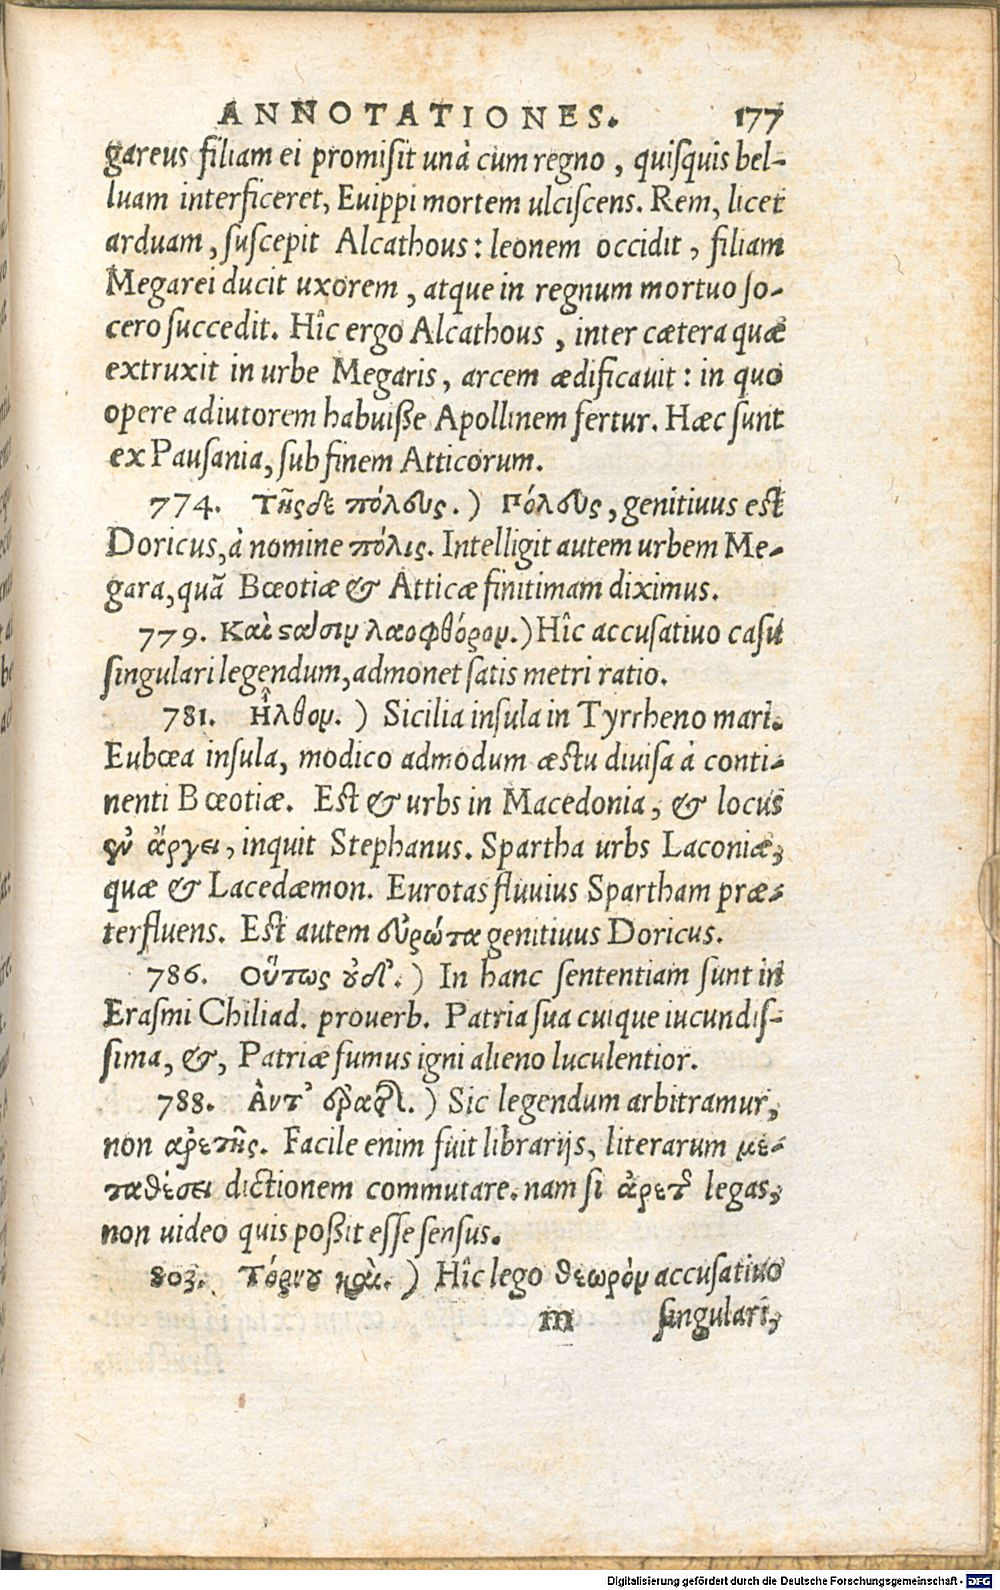 ANNOTATIONES. 177
gareus filiam ei promisit unà cum regno, quisquis bel-
luam interficeret, Euippi mortem ulciscens. Rem, licet
arduam, suscepit Alcathous: leonem occidit, filiam
Megarei ducit uxorem, atque in regnum mortuo so-
cero succedit. Hîc ergo Alcathous, inter cætera quæ
extruxit in urbe Megaris, arcem ædificauit: in quo
opere adiutorem habuiße Apollinem fertur. Hæc sunt
ex Pausania, sub finem Atticorum.
774. Τῆςδε πόλευς.) Πόλευς, genitiuus est
Doricus, à nomine πόλις. Intelligit autem urbem Me-
gara, quã Bœotiæ & Atticæ finitimam diximus.
779. Καὶ στάσιν λαοφθόρον.) Hîc accusatiuo casu
singulari legendum, admonet satis metri ratio.
781. Ἦλθον.) Sicilia insula in Tyrrheno mari.
Eubœa insula, modico admodum æstu diuisa à conti-
nenti Bœotiæ. Est & urbs in Macedonia, & locus
ἐν ἄργει, inquit Stephanus. Spartha urbs Laconiæ,
quæ & Lacedæmon. Eurotas fluuius Spartham præ-
terfluens. Est autem εὐρώτα genitiuus Doricus.
786. Οὕτως οὐδ'.) In hanc sententiam sunt in
Erasmi Chiliad. prouerb. Patria sua cuique iucundis-
sima, &, Patriæ fumus igni alieno luculentior.
788. Ἀντ' ἐρατῆς.) Sic legendum arbitramur,
non ἀρετῆς. Facile enim fuit librarijs, literarum με-
ταθέσει dictionem commutare. nam si ἀρετῆς legas,
non uideo quis poßit esse sensus.
803. Τόρνου καὶ.) Hîc lego θεωρὸν accusatiuo
m singulari,
Digitalisierung gefördert durch die Deutsche Forschungsgemeinschaft - DFG